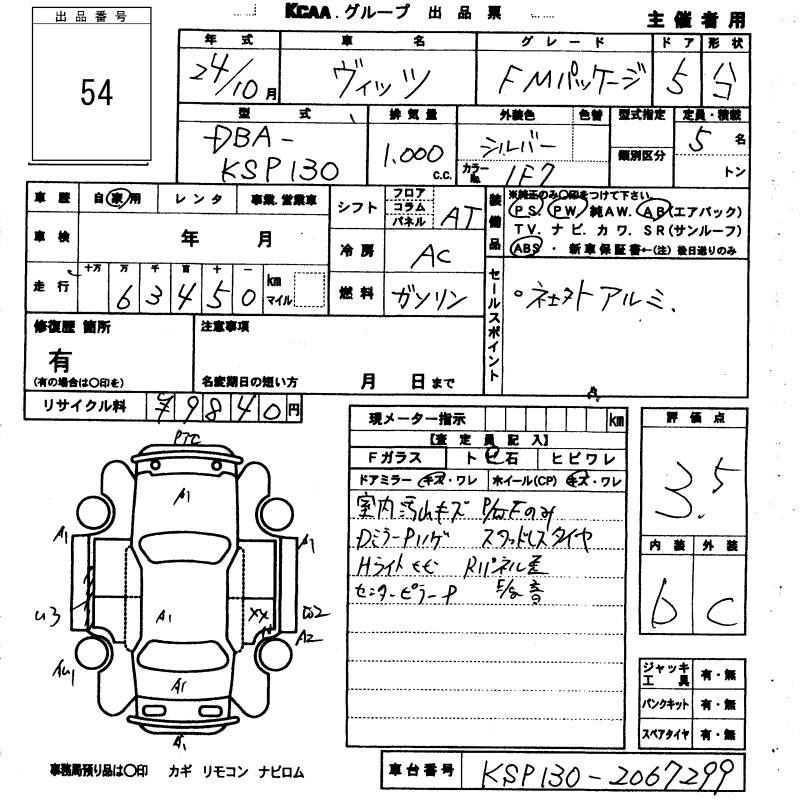 出品番号
54
KCAA.グループ 出品票
主催者用
年式 車名 グレード ドア 形状
24/10月 ヴィッツ FMパッケージ 5
型式 排気量 外装色 色替 型式指定 定員・積載
DBA-KSP130 1.000 c.c. シルバー カラーNo. 1F7 類別区分 5名 トン
車歴 自家用 レンタ 事業.営業車
車検 年 月
走行 十万 万 千 百 十 一 km マイル
6 3 4 5 0
シフト フロア コラム パネル AT
冷房 AC
燃料 ガソリン
装備品 ※純正のみ〇印をつけて下さい。
PS. PW. 純AW. AB(エアバック)
TV. ナビ. カワ. SR(サンルーフ)
ABS・新車保証書←(注)後日送りのみ
セールスポイント
。社外アルミ.
修復歴 箇所
有
(有の場合は〇印を)
注意事項
名変期日の短い方 月 日まで
リサイクル料 ¥9840円
現メーター指示 km
【査定員記入】
Fガラス トビ石 ヒビワレ
ドアミラー キズ・ワレ ホイール(CP) キズ・ワレ
室内汚 キズ
DミラーP スタッドレスタイヤ
Hライト Rパネル
センターピラーP E/g音
評価点
3.5
内装 外装
b C
ジャッキ工具 有・無
パンクキット 有・無
スペアタイヤ 有・無
A1
A1 A1
U3 A1 XX A2
A1
A1
事務局預り品は〇印 カギ リモコン ナビロム
車台番号 KSP130-2067299